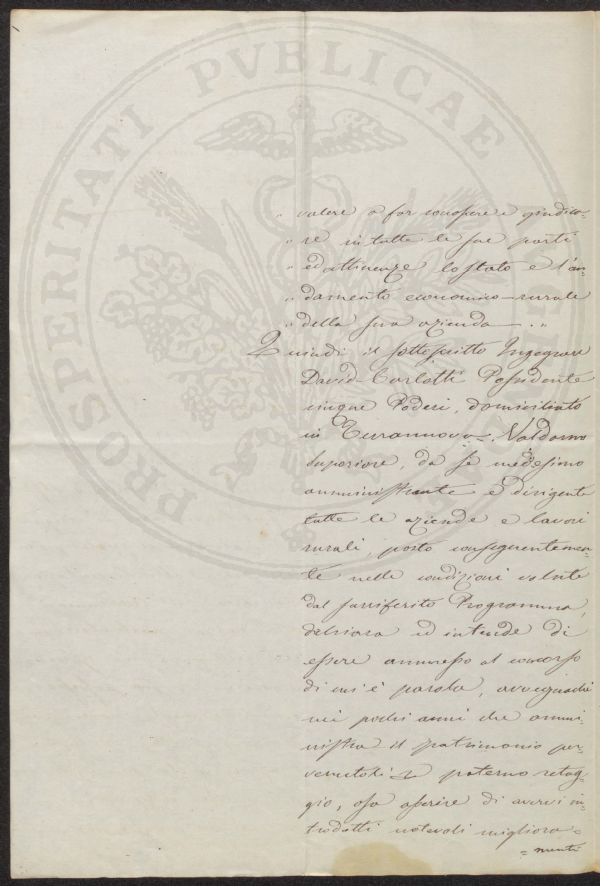 " valere a far conoscere e giudica=
" re in tutte le sue parti
" ed attinenze lo stato e l'an=
" damento economico-rurale
" della sua azienda — . "
Quindi il sottoscritto Ingegnere
David Carlotti Possidente
cinque Poderi, domiciliato
in Terranuova - Valdarno
Superiore, da se medesimo
amministrante e dirigente
tutte le aziende e lavori
rurali, posto conseguentemen=
te nelle condizioni volute
dal surriferito Programma,
dichiara ed intende di
essere ammesso al concorso
di cui è parola, avvegnachè
nei pochi anni che ammi=
nistra il patrimonio per=
venutoli paterno retag=
gio, osa asserire di avervi in=
trodotti notevoli migliora=
= menti
PROSPERITATI PVBLICAE AVGENDAE